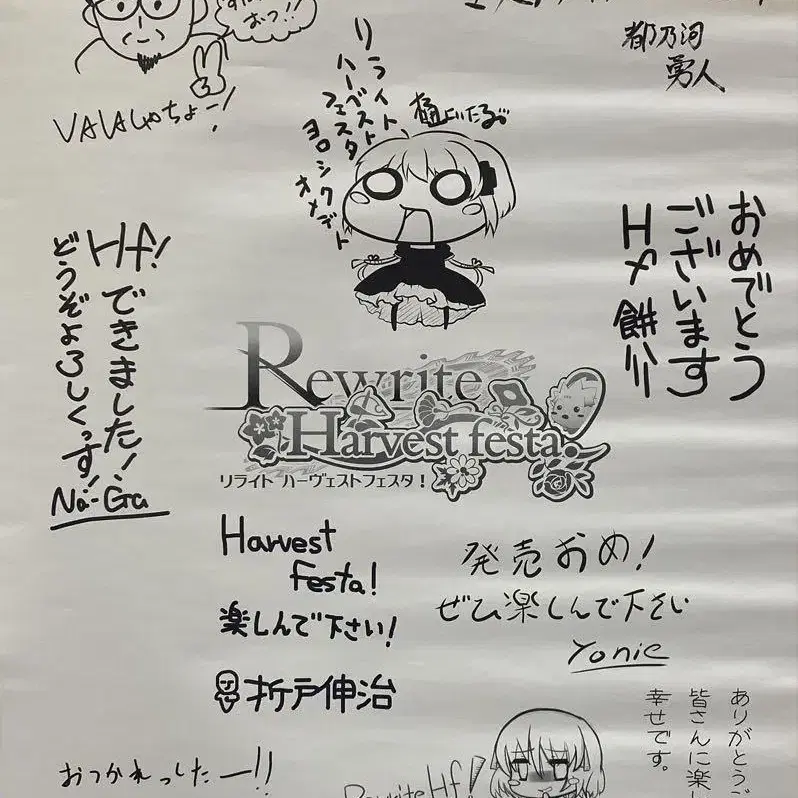 おっ!!
VAVAしゃちょー!
都乃河
勇人
樋上いたる
リライト
ハーベスト
フェスタ
ヨロシク
オメデト
おめでとう
ございます
Hf!
できました!
どうぞよろしくっす!
Na-Ga
Rewrite
Harvest festa!
リライト ハーヴェストフェスタ!
Harvest
festa!
楽しんで下さい!
折戸伸治
発売おめ!
ぜひ楽しんで下さい
ありがとうご
皆さんに楽し
幸せです。
おつかれっしたー!!
Rewrite Hf!